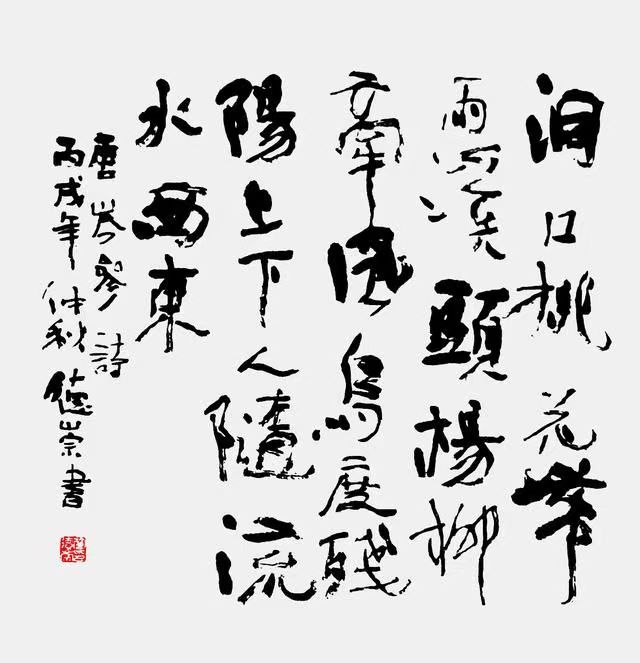 洞口桃花帶
雨溪頭楊柳
牽風鳥度殘
陽上下人隨流
水西東
唐岑參詩
丙戌年仲秋德崇書